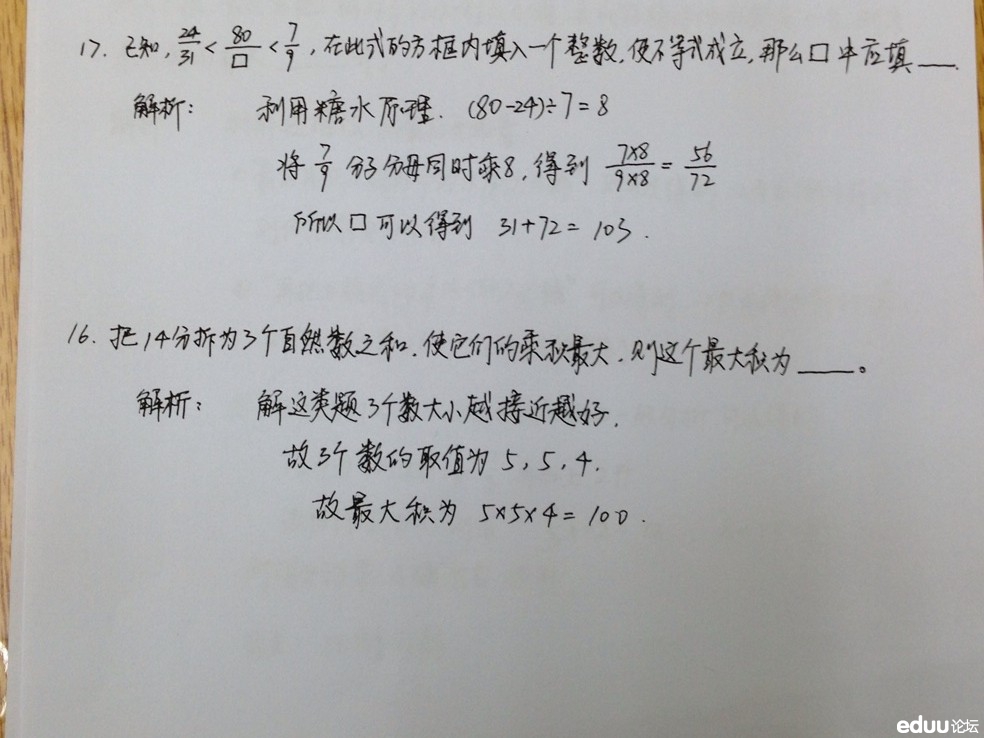 17. 已知, 24/31 < 80/□ < 7/9, 在此式的方框内填入一个整数, 使不等式成立, 那么□中应填___.
解析: 利用糖水原理. (80-24)÷7=8
将 7/9 分子分母同时乘8, 得到 7×8/9×8 = 56/72
所以□可以得到 31+72=103.
16. 把14分拆为3个自然数之和, 使它们的乘积最大, 则这个最大积为____。
解析: 解这类题3个数大小越接近越好.
故3个数的取值为 5, 5, 4.
故最大积为 5×5×4=100.
eduu论坛